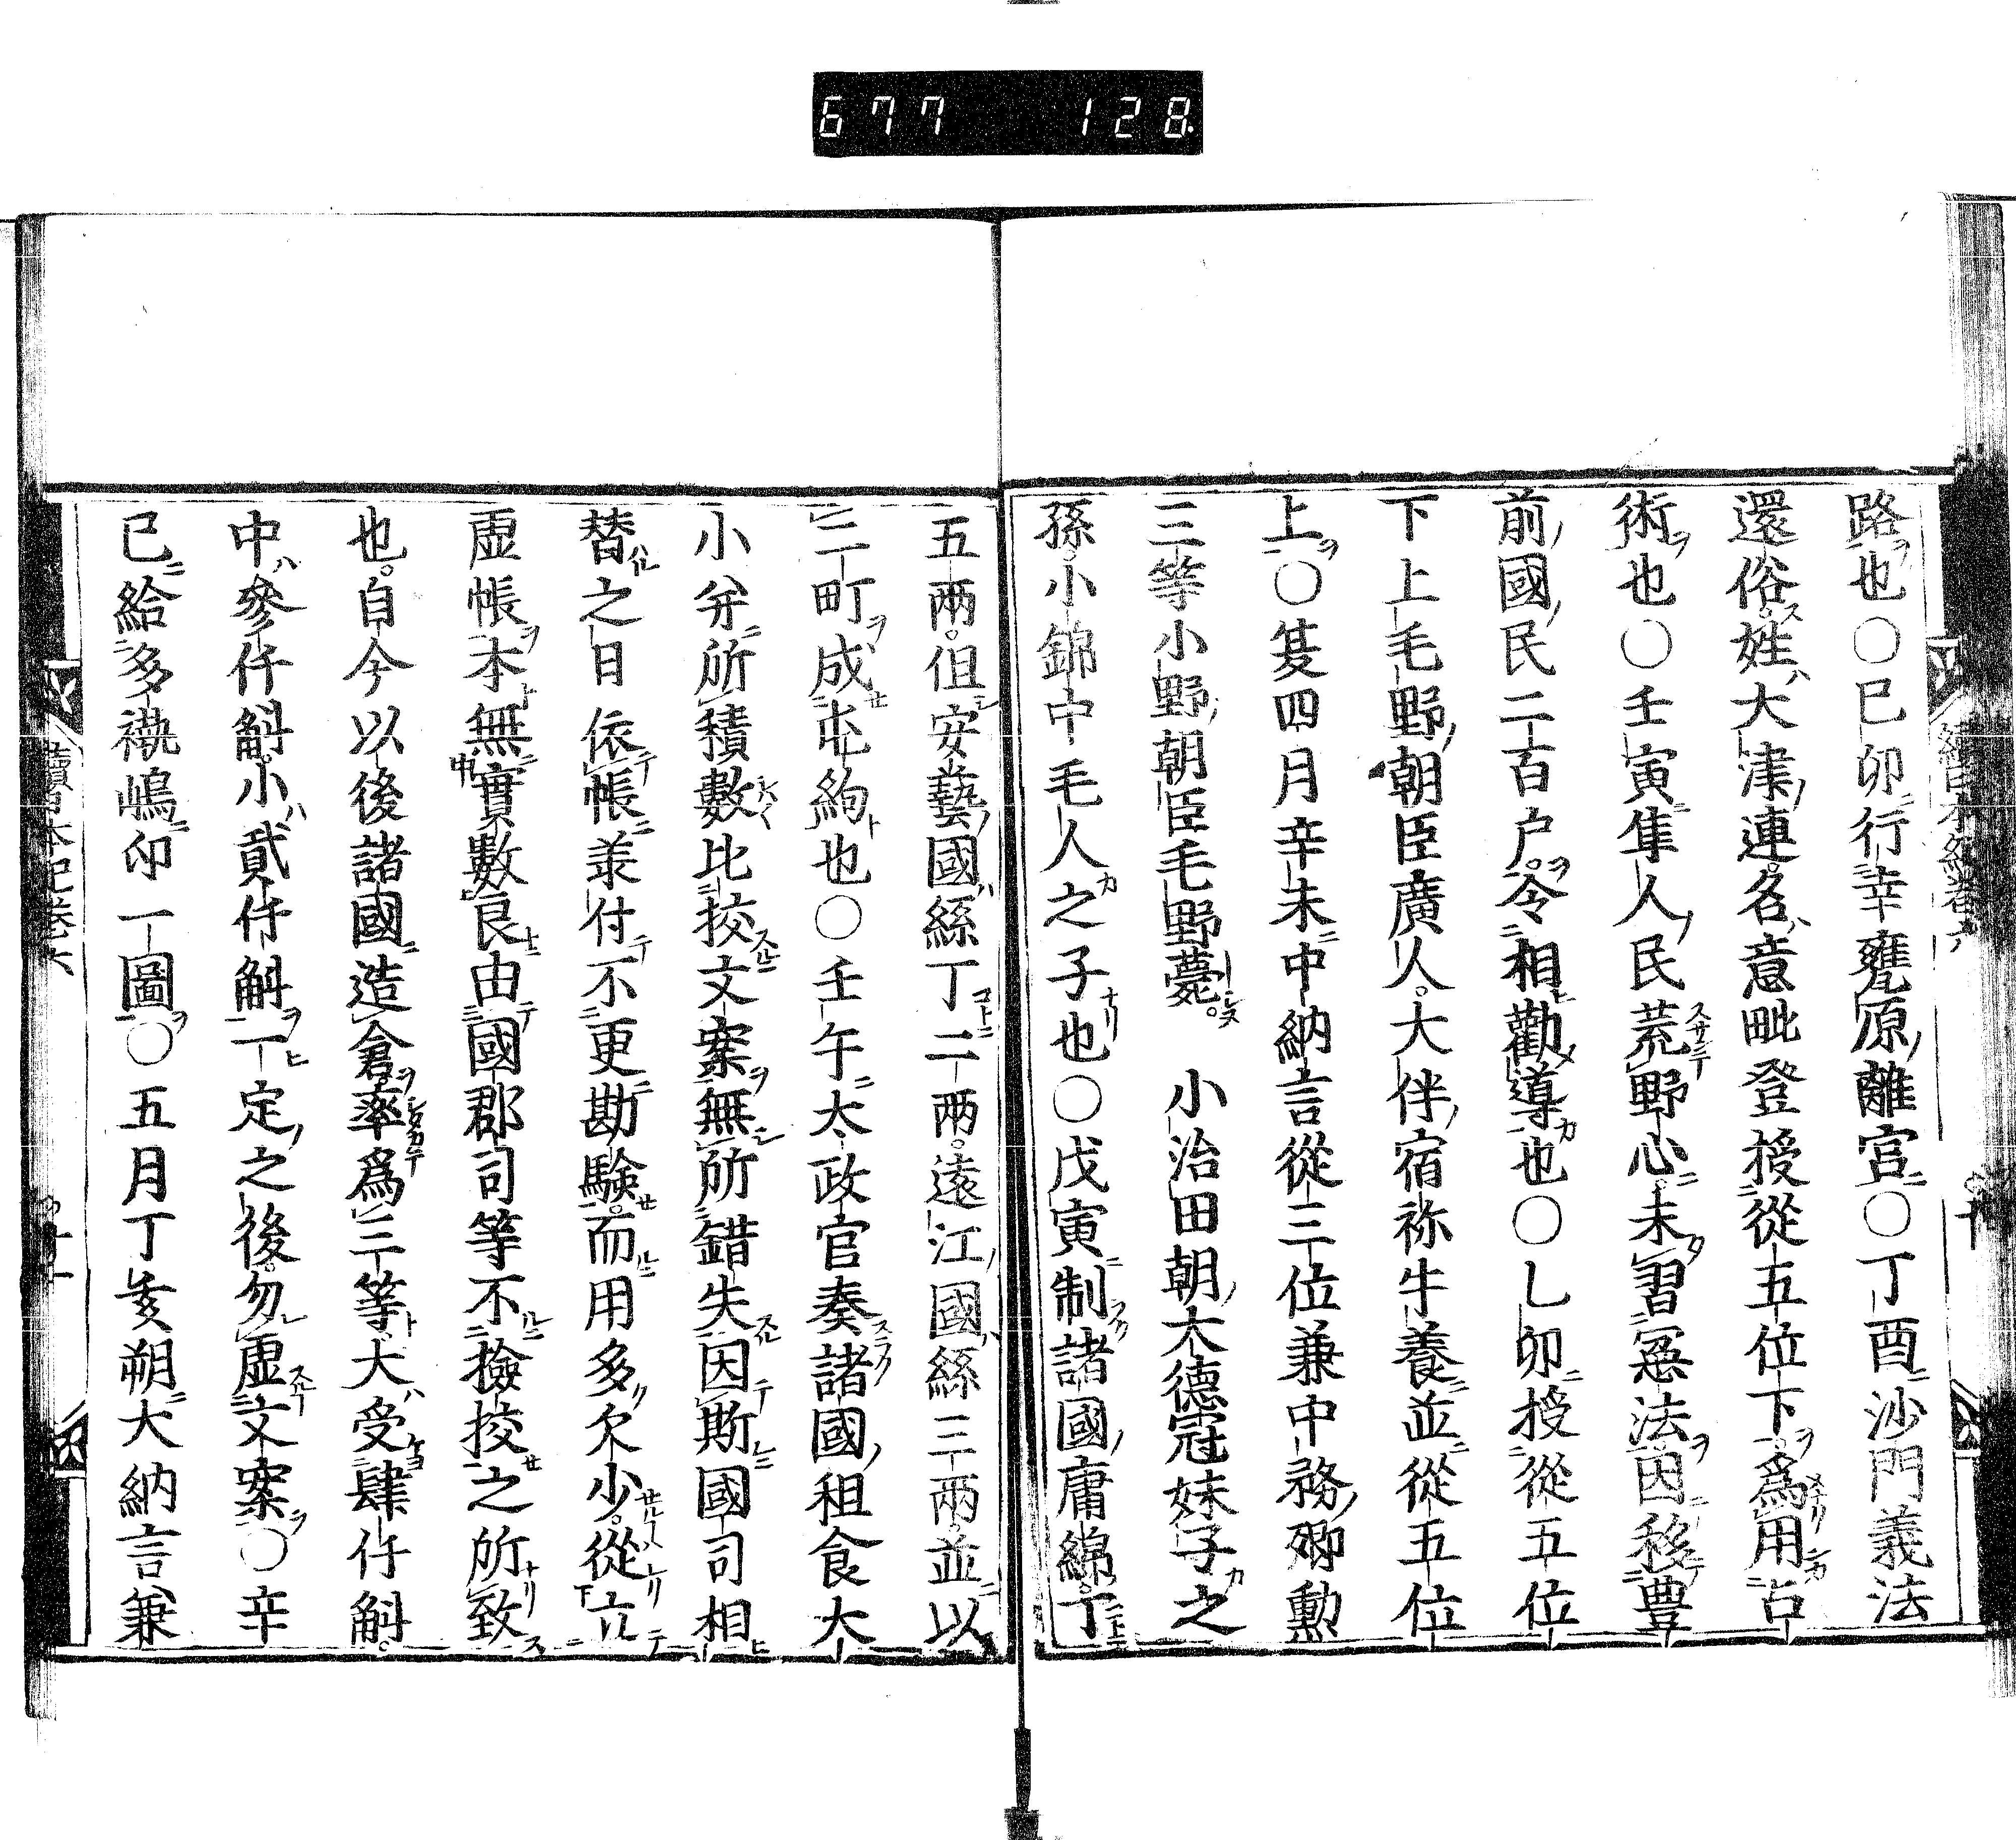 677 128
路也○巳卯行幸甕原離宮○丁酉沙門義法
還俗姓大津連名意毗登授從五位下爲用占
術也○壬寅隼人民荒野心未習憲法因移豊
前國民二百户令相勸導也○乚卯授從五位
下上毛野朝臣廣人大伴宿祢牛養並從五位
上○夏四月辛未中納言從三位兼中務卿勳
三等小野朝臣毛野薨。小治田朝大德冠妹子之
孫。小錦中毛人之子也○戊寅制諸國庸綿丁
五兩。但安藝國絲丁二兩。遠江國絲三兩。並以
二町成屯絇也○壬午太政官奏諸國租食大
小幷所積數比挍文案無所錯失因斯國司相
替之日依帳承付不更勘驗。而用多欠少。從立
虛帳本無實數良由國郡司等不撿挍之所致
也。自今以後諸國造倉率爲三等大受肆仟斛。
中參仟斛。小貳仟斛一定之後。勿虛文案○辛
巳給多褹嶋印一圖○五月丁亥朔大納言兼
續日本紀卷六